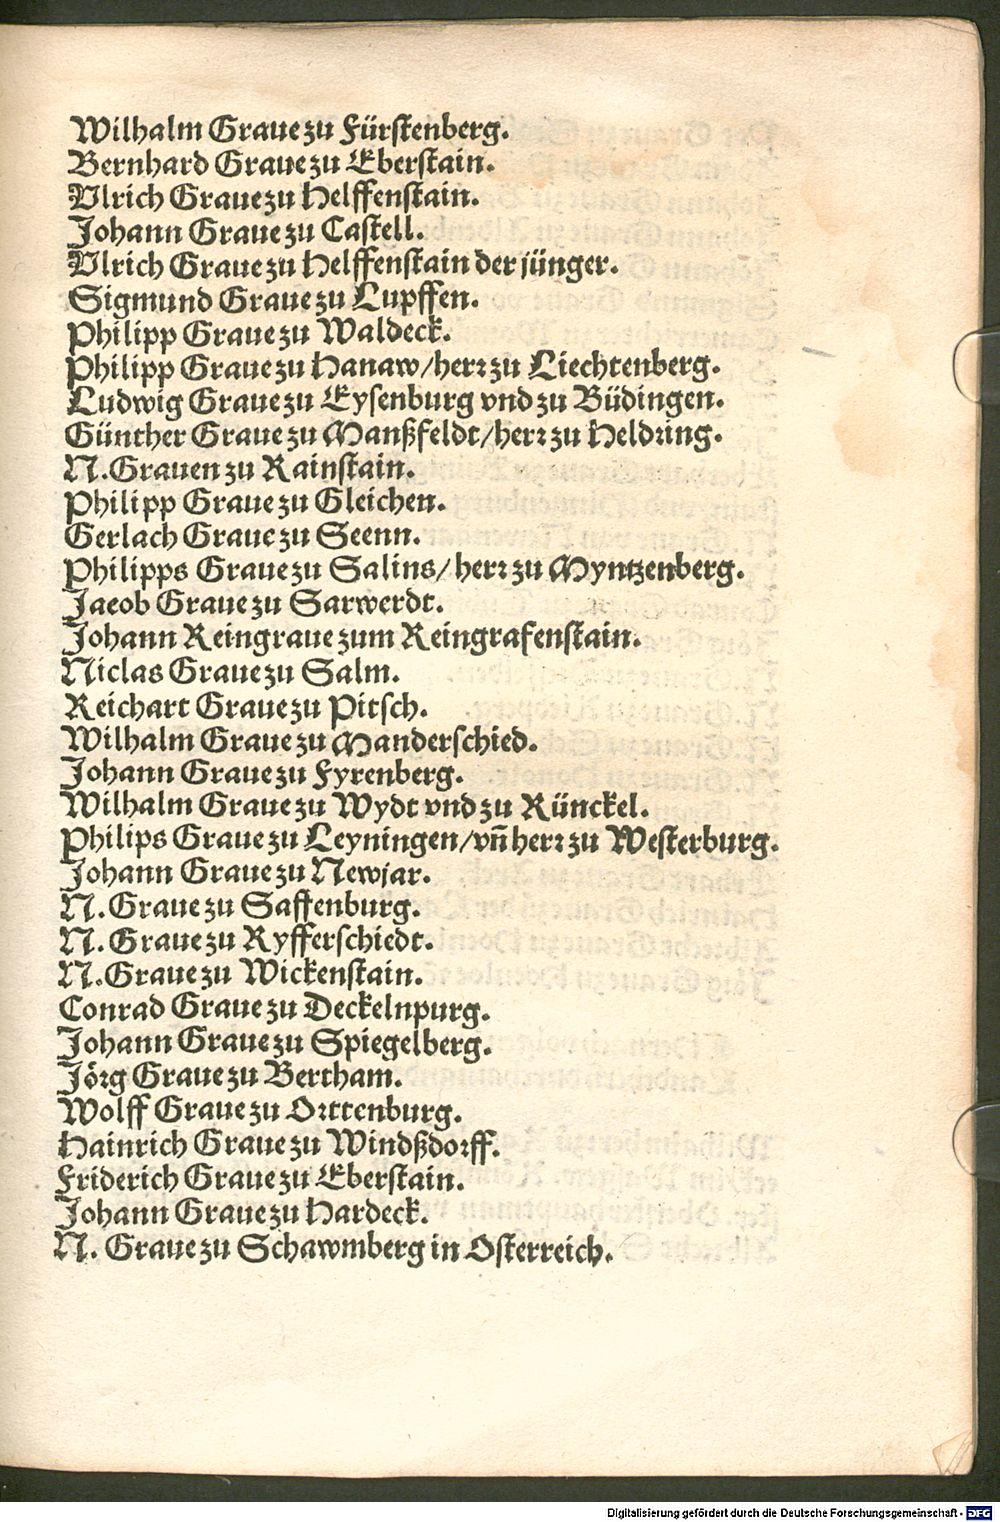 Wilhalm Graue zu Fürstenberg.
Bernhard Graue zu Eberstain.
Vlrich Graue zu Helffenstain.
Johann Graue zu Castell.
Vlrich Graue zu Helffenstain der jünger.
Sigmund Graue zu Lupffen.
Philipp Graue zu Waldeck.
Philipp Graue zu Hanaw/herꝛ zu Liechtenberg.
Ludwig Graue zu Eysenburg vnd zu Büdingen.
Günther Graue zu Manßfeldt/herꝛ zu Heldꝛing.
N. Grauen zu Rainstain.
Philipp Graue zu Gleichen.
Gerlach Graue zu Seenn.
Philipps Graue zu Salins/herꝛ zu Myntzenberg.
Jacob Graue zu Sarwerdt.
Johann Reingraue zum Reingrafenstain.
Niclas Graue zu Salm.
Reichart Graue zu Pitsch.
Wilhalm Graue zu Manderschied.
Johann Graue zu Fyrenberg.
Wilhalm Graue zu Wydt vnd zu Rünckel.
Philips Graue zu Leyningen/vn̄ herꝛ zu Westerburg.
Johann Graue zu Newjar.
N. Graue zu Saffenburg.
N. Graue zu Ryfferschiedt.
N. Graue zu Wickenstain.
Conrad Graue zu Deckelnpurg.
Johann Graue zu Spiegelberg.
Jöꝛg Graue zu Bertham.
Wolff Graue zu Oꝛttenburg.
Hainrich Graue zu Windßdoꝛff.
Friderich Graue zu Eberstain.
Johann Graue zu Hardeck.
N. Graue zu Schawmberg in Osterreich.
Digitalisierung gefördert durch die Deutsche Forschungsgemeinschaft - DFG